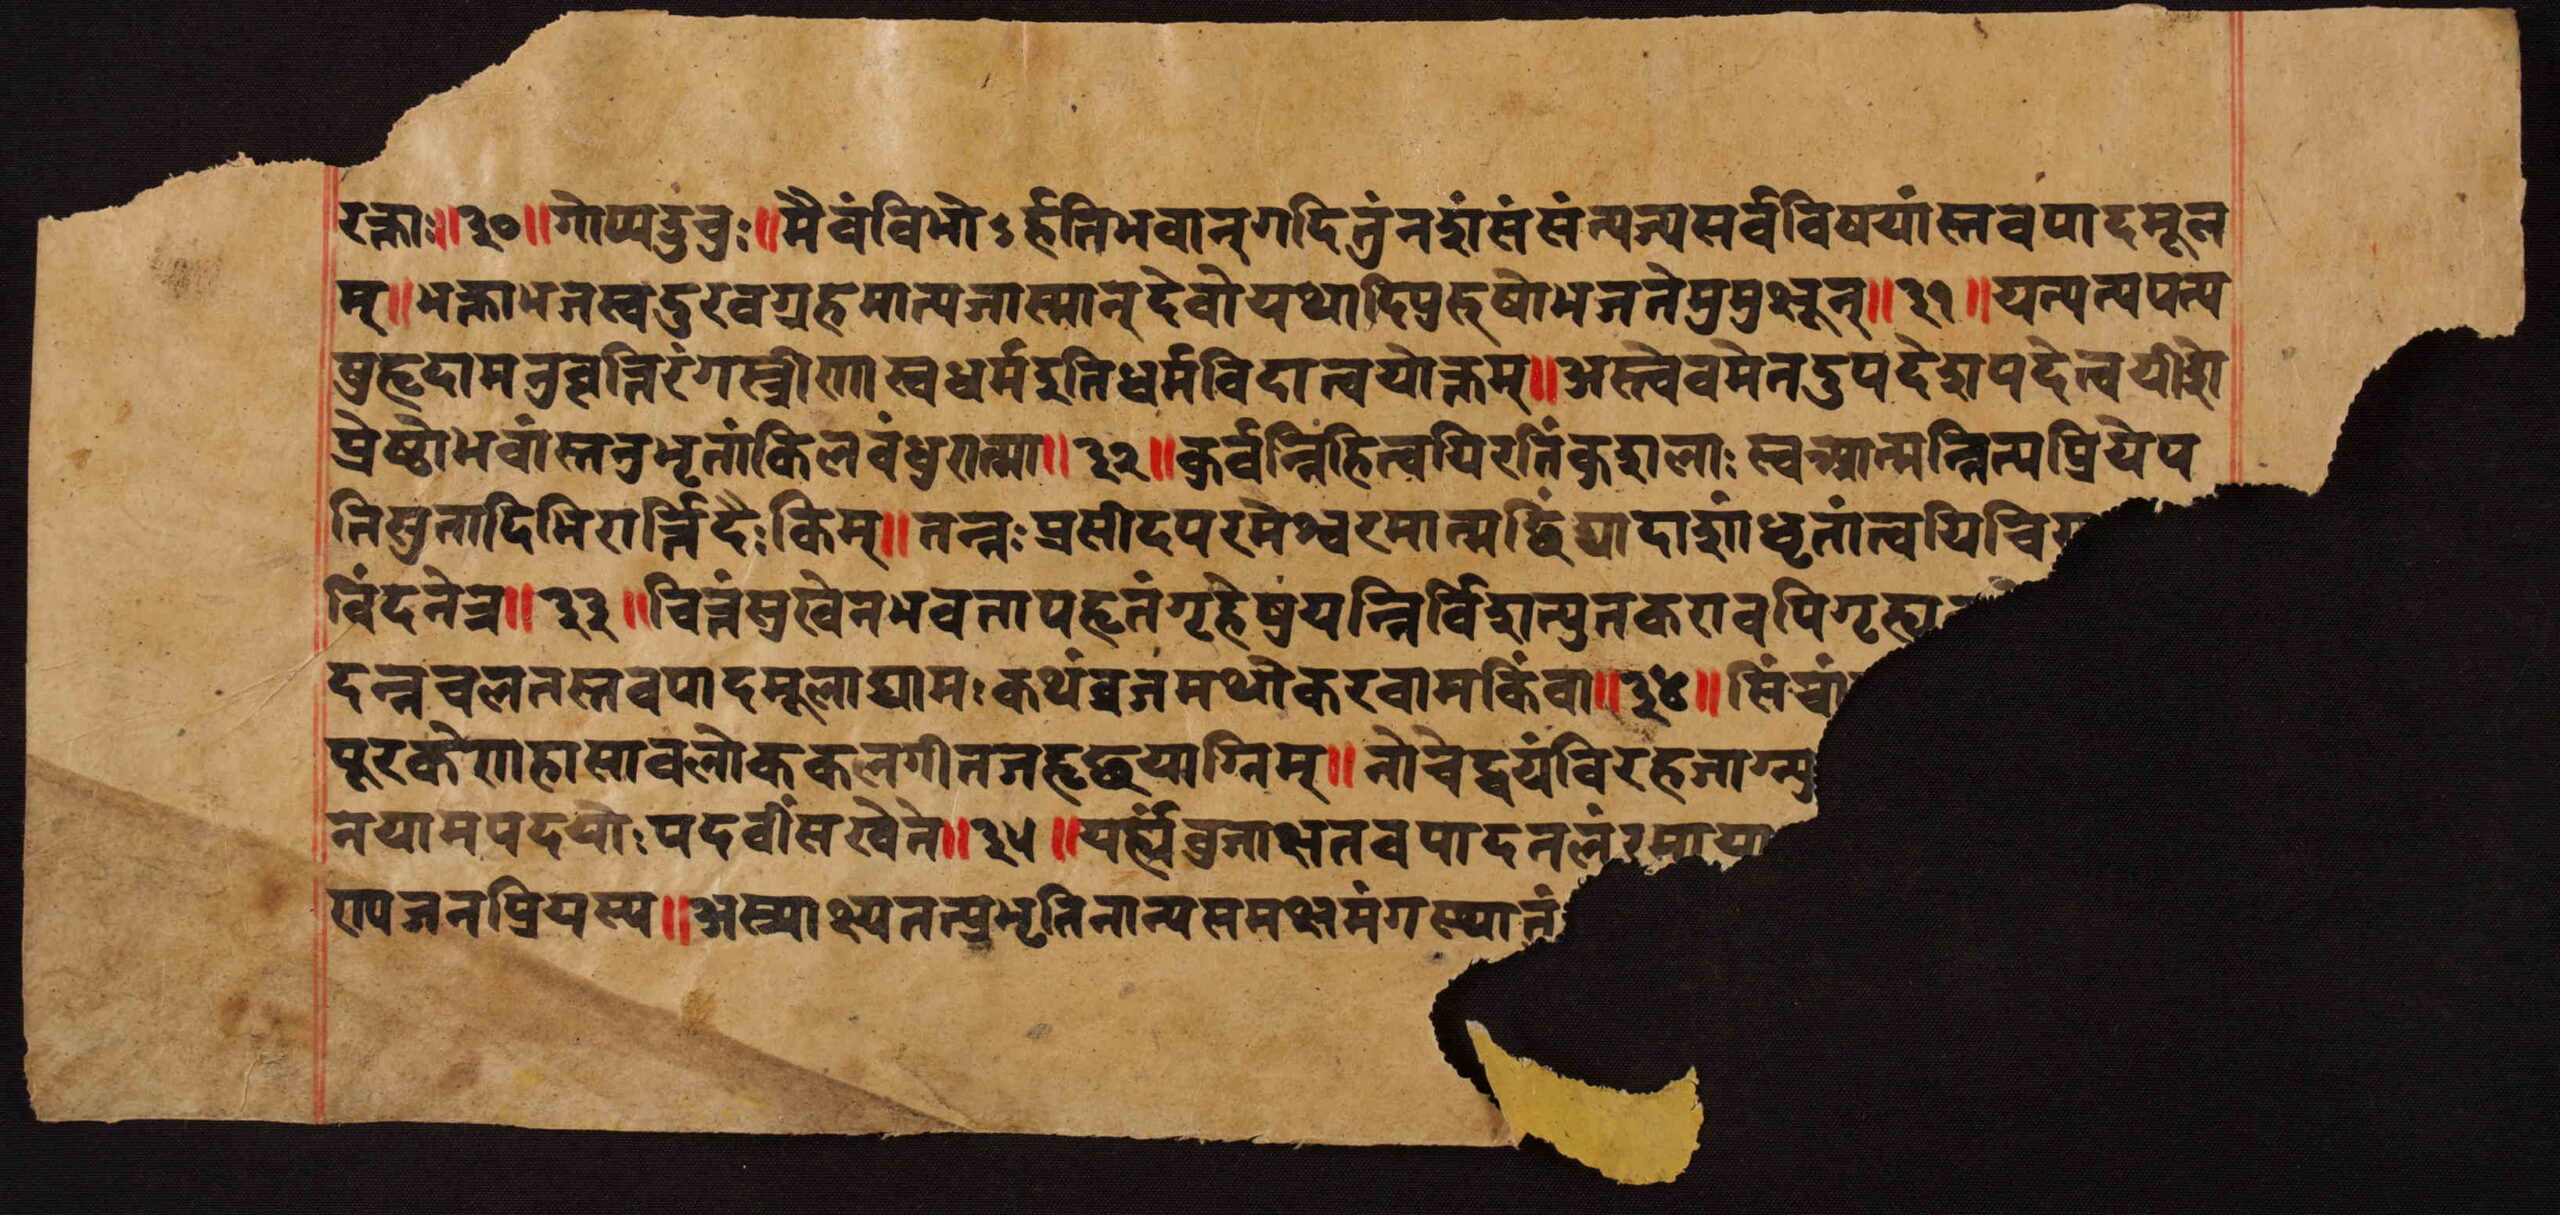 रक्ताः॥३०॥गोप्यदुचुः॥मैवंविभोऽर्हतिभवान्गदितुंनृशंसंसंत्यज्यसर्वविषयांस्तवपादमूल
म्॥भक्ताभजस्वदुरवग्रहमात्यजास्मान्देवोयथादिपुरुषोभजतेमुमुक्षून्॥३१॥यत्पत्यपत्य
षुहृदामनुवृत्तिरंगस्त्रीणास्वधर्मइतिधर्मविदात्वयोक्तम्॥अस्त्वेवमेतदुपदेशपदेत्वयीशे
प्रेष्ठोभवांस्तनुभृतांकिलबंधुरात्मा॥३२॥कुर्वन्तिहित्वयिरतिंकुशलाः स्वआत्मन्नित्यप्रियेप
तिसुतादिभिरार्त्तिदैःकिम्॥तन्नःप्रसीदपरमेश्वरमात्मछिंद्यादाशांधृतांत्वयिचि
विंदनेत्र॥३३॥चित्तंसुखेनभवतापहृतंगृहेषुयन्निर्विशत्युतकरावपिगृह्य
दन्नचलतस्तवपादमूलाद्यामःकथंव्रजमथोकरवामकिंवा॥३४॥सिंचां
पूरकेणहासावलोककलगीतजहृछयाग्निम्॥नोचेद्वयंविरहजाग्न्यु
नयामपदयोःपदवींसखेते॥३५॥यर्ह्यंबुजाक्षतवपादतलंरमाया
ण्यजनप्रियस्य॥अस्प्राक्ष्यतत्प्रभृतिनान्यसमक्षमंगस्थातं